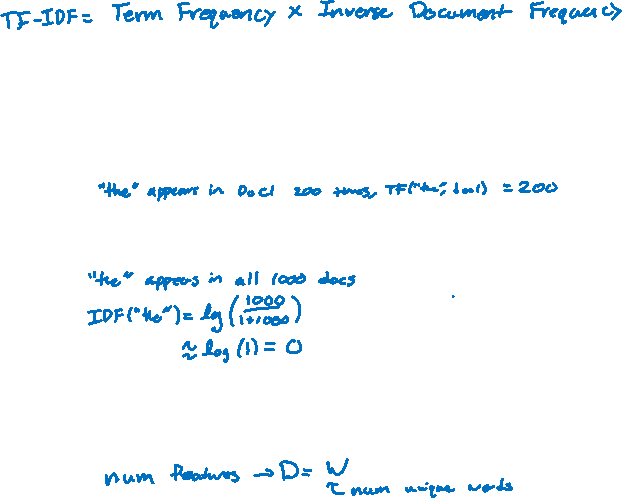 TF-IDF = Term Frequency × Inverse Document Frequency
"the" appears in Doc1 200 times, TF("the", doc1) = 200
"the" appears in all 1000 docs
IDF("the") = log(1000/(1+1000))
≈ log(1) = 0
num features → D = W
num unique words